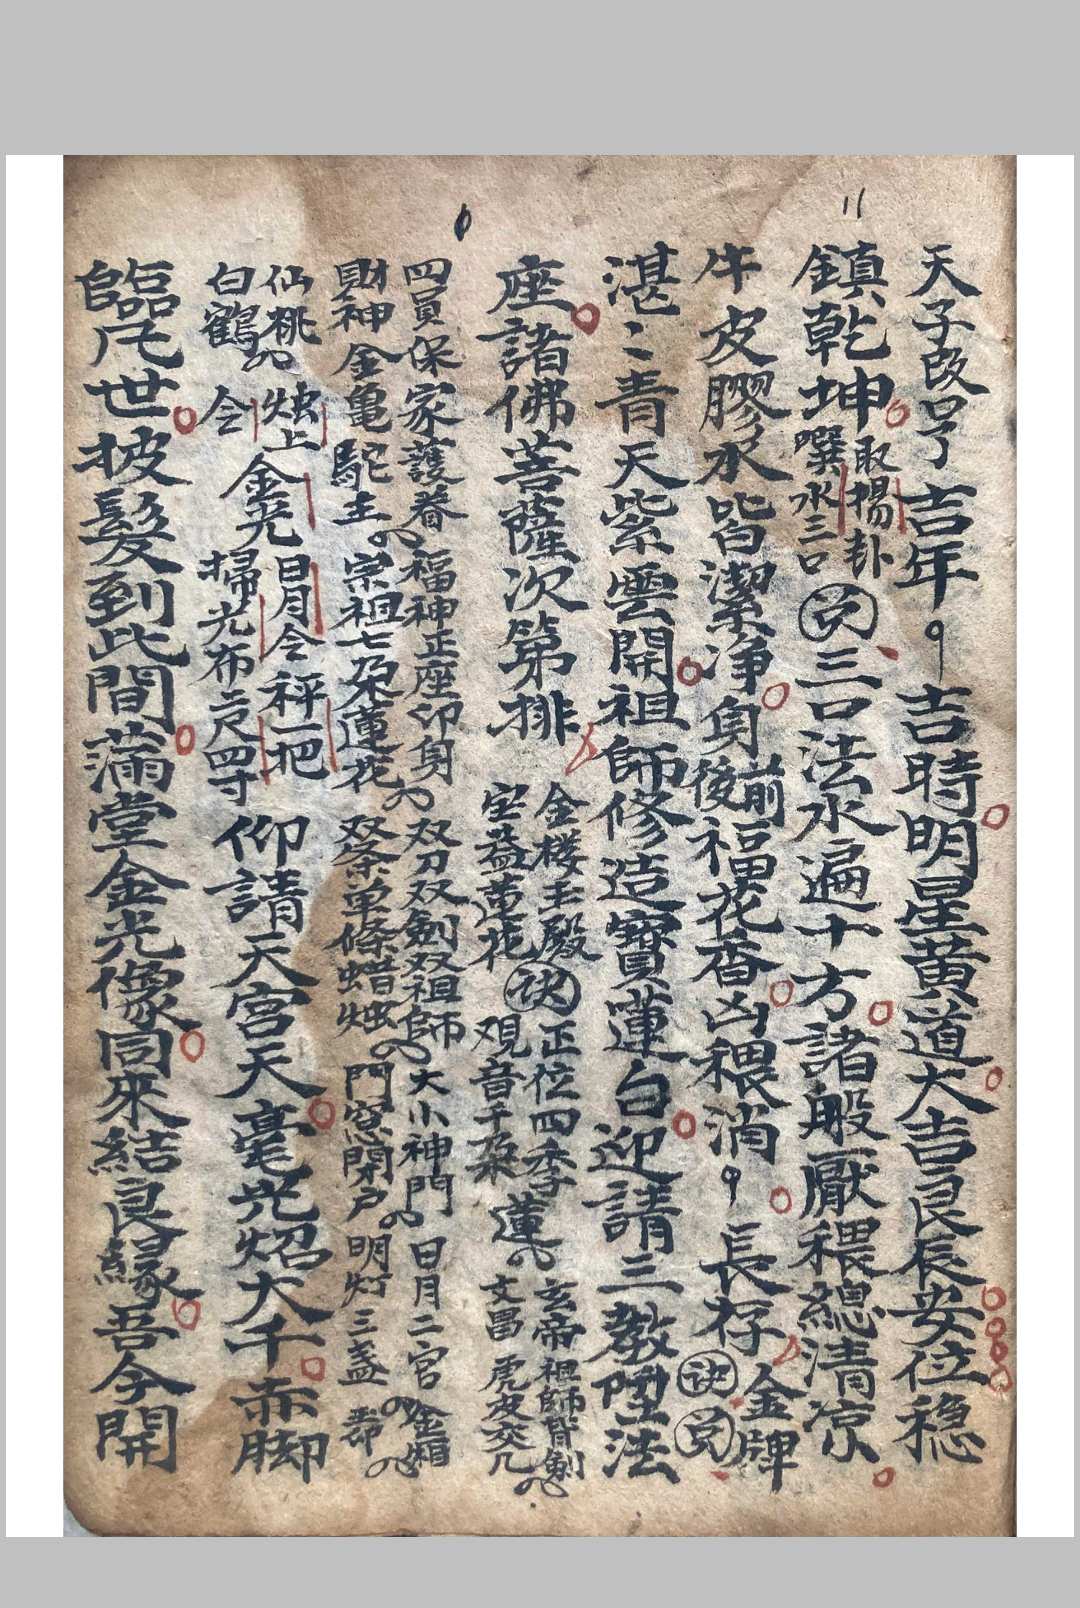 天子改号吉年吉時明星黄道大吉良辰安位穏
鎮乾坤取揚卦噀水三口三口法水遍十方諸般厭穢總清凉
牛皮膠水皆潔净身前後福花香凶穢消長存訣金牌
湛〻青天紫雲開祖師修造寳蓮台迎請三教陞法
座諸佛菩薩次第排金楼玉殿宝蓋蓮花訣正位四季观音千朶蓮玄帝祖師背劍文昌虎皮交几
四員保家護眷福神正座印身双刀双劍双祖師大小神門日月二宫金
財神金亀駝玉宗祖七朶蓮花双条单條蜡烛門窓閑户明灯三盏
仙桃白鶴烛上金光日月今秤一把掃光布二尺四寸仰請天宫天毫光炤大千赤脚
臨凡世披髮到此間满堂金光像同來結良緣吾今開